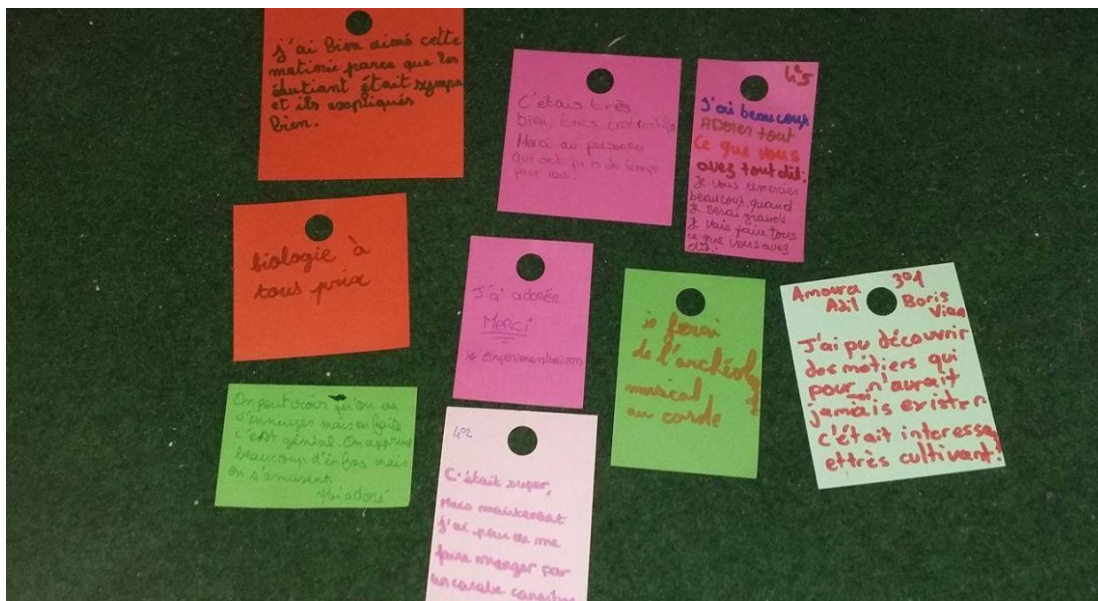 j'ai bien aimé cette
matinié parce que les
édutiant était sympa
et ils expliqués
bien.
C'étais très
bien, très instructifs
Merci au personnes
qui ont pris du temps
pour nous.
4°5
J'ai beaucoup
ADorer tout
Ce que vous
avez tout dit:
je vous remercier
beaucoup, quand
je serai grande
je vais faire tous
ce que vous avez
dit.
biologie à
tous prix
J'ai adorée
MERCI
* experimentarium
je ferai
de l'archéolo
musical
au carde
Amoura 3°1
Azil Boris
Vian
J'ai pu découvrir
des métiers qui
pour moi n'aurait
jamais exister
c'était interessa
et très cultivant!
On peut croir qu'on va
s'ennuyer mais en faite
c'est génial. On apprend
beaucoup d'infos mais
on s'amusent.
J'ai adoré
4°2
C'était super,
Mais maintenant
j'ai peur de me
faire manger par
un carabe